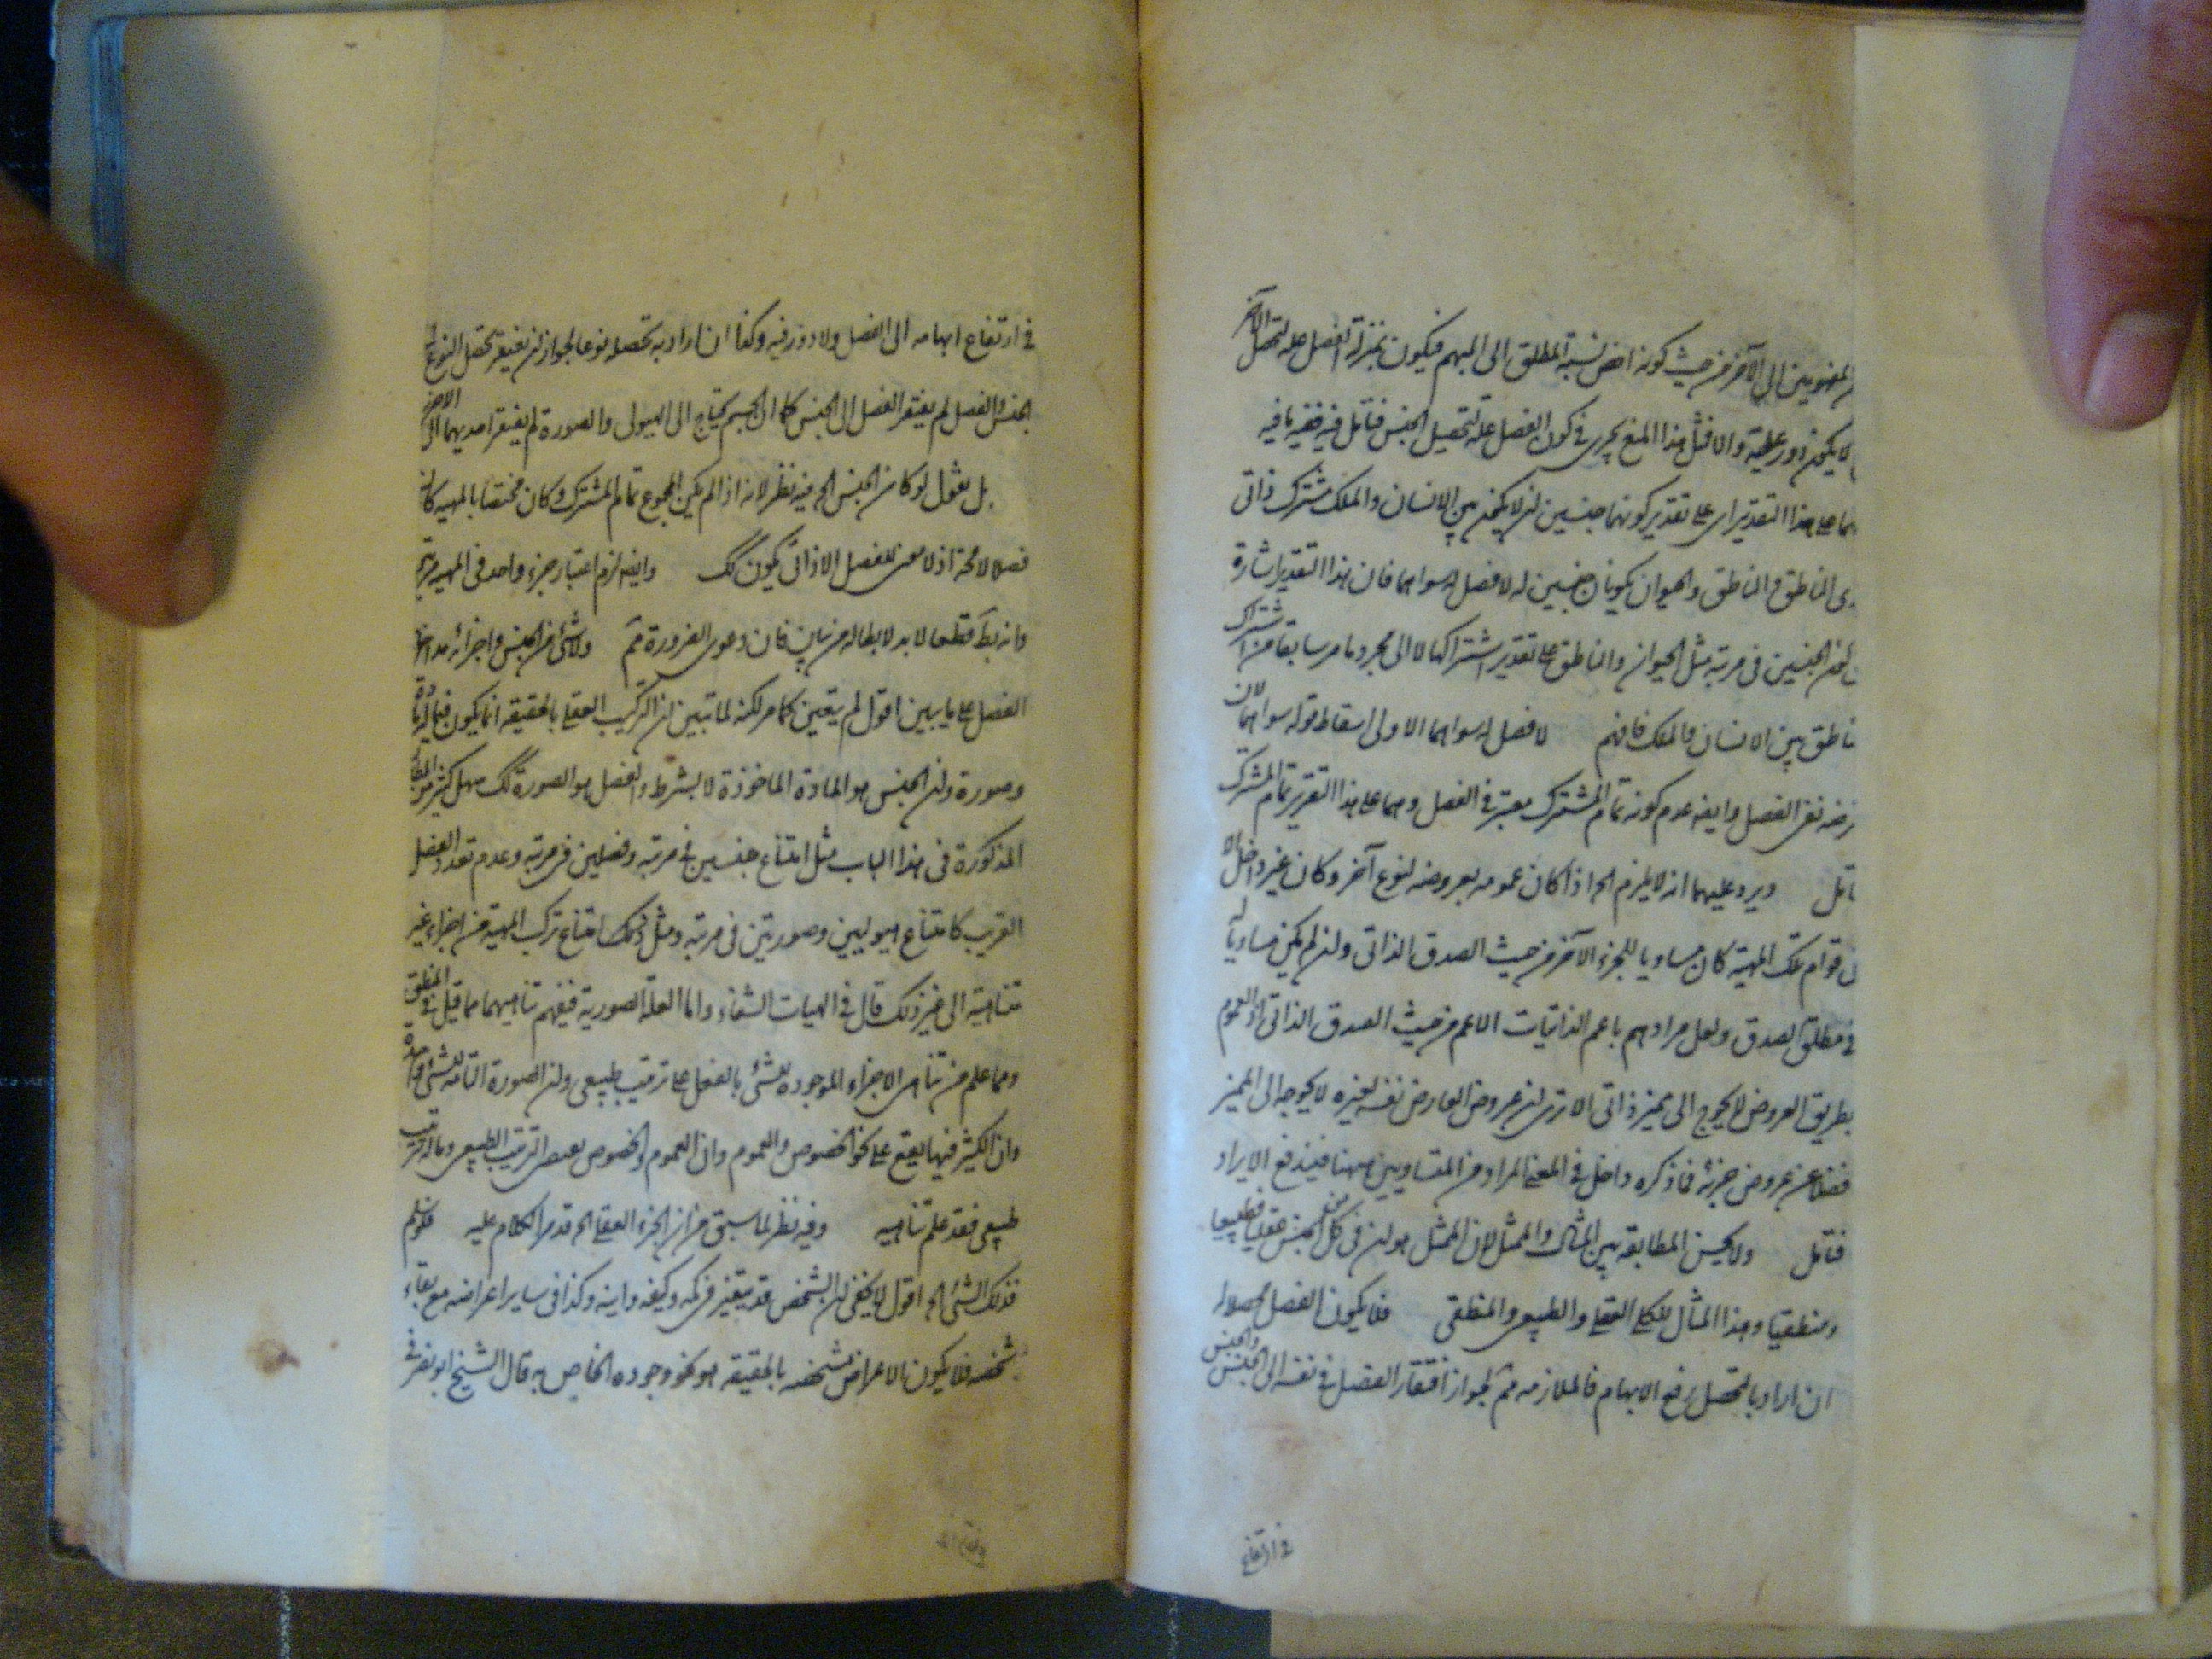 المفهومين الى الآخر من حيث كونه اخص نسبة المطلق الى المبهم فيكون بمنزلة الفصل علة لتحصل الآخر
لا يكون دور علية والا فمثل هذا المنع يجرى فى كون الفصل علة لتحصيل الجنس فتأمل فيه ففيه ما فيه
على هذا التقدير اى على تقدير كونهما جنسين لن لا يكون بين الانسان والملك مشترك ذاتى
الناطق والناطق والحيوان يكونان جنسين له لا فصل له سواهما فان هذا التقدير اشارة
الجنسين فى مرتبة مثل الحيوان والناطق على تقدير اشتراكهما لا الى مجرد ما مر سابقا من اشتراك
ناطق بين الانسان والملك فافهم لا فصل له سواهما الاولى اسقاط قوله سواهما لان
نفى الفصل وايضه عدم كونه تمام المشترك معتبر فى الفصل وهما على هذا التقرير تمام المشترك
ويرد عليهما انه لا يلزم الخ اذا كان عمومه بعروضه لنوع آخر وكان غير داخل
قوام تلك المهية كان مساويا للجزء الآخر من حيث الصدق الذاتى ولن لم يكن مساويا له
فى مطلق الصدق ولعل مرادهم باعم الذاتيات الاعم من حيث الصدق الذاتى اذ العموم
بطريق العروض لا يحوج الى مميز ذاتى الا ترى لن عروض العارض نفسه لغيره لا يحوجه الى المميز
فضلا عن عروض جزئه فما ذكره داخل فى المعنى المراد من المتساويين ههنا فيندفع الايراد
فتأمل ولا يحسن المطابقة بين المثال والممثل لان الممثل هو لن فى كل جنس عقليا وطبيعيا
ومنطقيا وهذا المثال للكلى العقلى والطبيعى والمنطقى فلا يكون الفصل محصلا له
ان اراد بالتحصل رفع الابهام فالملازمه مم لجواز افتقار الفصل فى نفسه الى الجنس والجنس
فى ارتفاع
فى ارتفاع ابهامه الى الفصل ولا دور فيه وكذا ان اراد به تحصله نوعا لجواز لن يفتقر تحصل النوع
الجنس والفصل لم يفتقر الفصل الى الجنس كما ان الجسم يحتاج الى الهيولى والصورة لم يفتقر احديهما الى الاخر
بل نقول لو كان الجنس الخ فيه نظر لانه اذا لم يكن المجموع تمام المشترك وكان مختصا بالمهية كان
فصلا لا محة اذ لا معنى للفصل الا ذاتى يكون كك وايضه لزم اعتبار جزء واحد فى المهية مرتين
وانه بط قطعا لا بد لابطاله من بيان فان دعوى الضرورة مم ولا شئ من الجنس واجزائه
الفصل على ما يبين اقول لم يتعين كما مر لكنه لما تبين لن التركيب العقلى بالحقيقه انما يكون فيما له مادة
وصورة ولن الجنس هو المادة الماخوذة لا بشرط والفصل هو الصورة كك سهل كثير من المطالب
المذكورة فى هذا الباب مثل امتناع جنسين فى مرتبه وفصلين فى مرتبه وعدم تعدد الفصل
القريب كامتناع هيوليين وصورتين فى مرتبه ومثل ذلك امتناع تركب المهية من اجزاء غير
متناهية الى غير ذلك قال فى الهيات الشفاء واما العلة الصورية فيفهم تناهيهما مما قيل فى المنطق
ومما علم من تناهى الاجزاء الموجوده للشئ بالفعل على ترتيب طبيعى ولن الصورة التامه للشئ واحدة
وان الكثير فيها يقع على نحو الخصوص والعموم وان العموم والخصوص يقتضى الترتيب الطبيعى وماله ترتيب
طبيعى فقد علم تناهيه وفيه نظر لما سبق من ان الجزء العقلى الخ قد مر الكلام عليه
فذلك الشئ الخ اقول لا يخفى لن الشخص قد يتغير فى كمه وكيفه واينه وكذا فى ساير اعراضه مع بقاء
شخصه فلا يكون الاعراض مشخصه بالحقيقه هو نحو وجوده الخاص به قال الشيخ ابو نصر فى